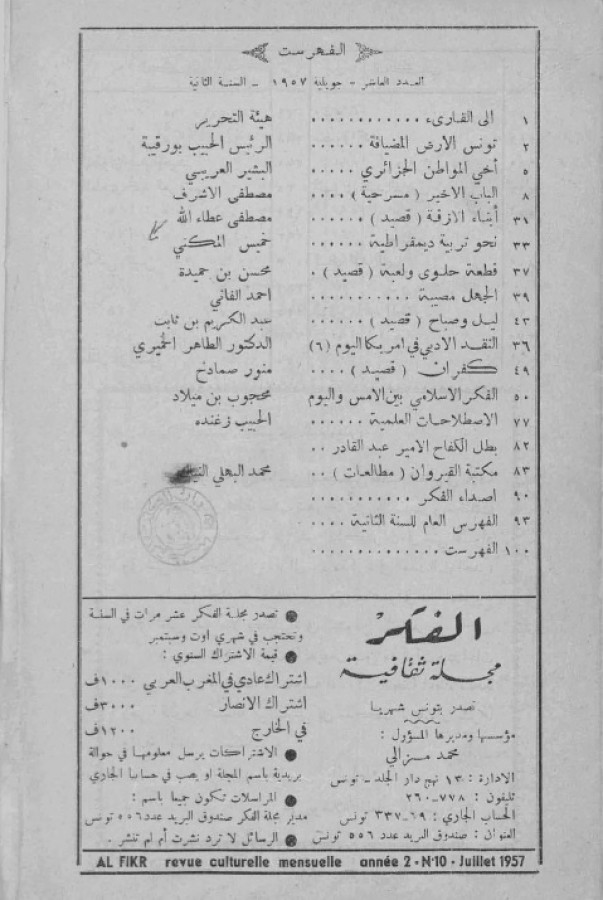 الفهرست
العدد العاشر - جويلية ١٩٥٧ - السنة الثانية
١ الى القارىء ............ هيئة التحرير
٢ تونس الارض المضيافة ...... الرئيس الحبيب بورقيبة
٥ أخي المواطن الجزائري ..... البشير العريبي
٨ الباب الاخير ( مسرحية ) .... مصطفى الاشرف
٣١ أبناء الازقة ( قصيد ) ..... مصطفى عطاء الله
٣٣ نحو تربية ديمقراطية ...... خميس المكني
٣٧ قطعة حلوى ولعبة ( قصيد ) . محسن بن حميدة
٣٩ الجهل مصيبة ........... احمد الفاني
٤٣ ليل وصباح ( قصيد ) ...... عبد الكريم بن ثابت
٣٦ النقد الادبي في امريكا اليوم (٦) الدكتور الطاهر الخميري
٤٩ كفران ( قصيد ) .... منور صمادح
٥٠ الفكر الاسلامي بين الامس واليوم محجوب بن ميلاد
٧٧ الاصطلاحات العلمية ...... الحبيب زغنده
٨٢ بطل الكفاح الامير عبد القادر ..
٨٣ مكتبة القيروان ( مطالعات ) .. محمد البهلي
٩٠ اصداء الفكر ...........
٩٣ الفهرس العام للسنة الثانية .....
١٠٠ الفهرست ............
الفكر
مجلة ثقافية
تصدر بتونس شهريا
مؤسسها ومديرها المسؤول :
محمد مزالي
الادارة : ١٣ نهج دار الجلد - تونس
تليفون : ٧٧٨-٢٦٠
الحساب الجاري : ٦٩-٣٣٧ تونس
العنوان : صندوق البريد عدد ٥٥٦ تونس
● تصدر مجلة الفكر عشر مرات في السنة
وتحتجب في شهري اوت وسبتمبر
● قيمة الاشتراك السنوي :
اشتراك عادي في المغرب العربي ١٠٠٠ف
اشتراك الانصار ٣٠٠٠ف
في الخارج ١٢٠٠ف
● الاشتراكات يرسل معلومها في حوالة
بريدية باسم المجلة او يصب في حسابها الجاري
● المراسلات تكون جميعا باسم :
مدير مجلة الفكر صندوق البريد عدد ٥٥٦ تونس
● الرسائل لا ترد نشرت أم لم تنشر .
AL FIKR revue culturelle mensuelle année 2 - N°10 - Juillet 1957